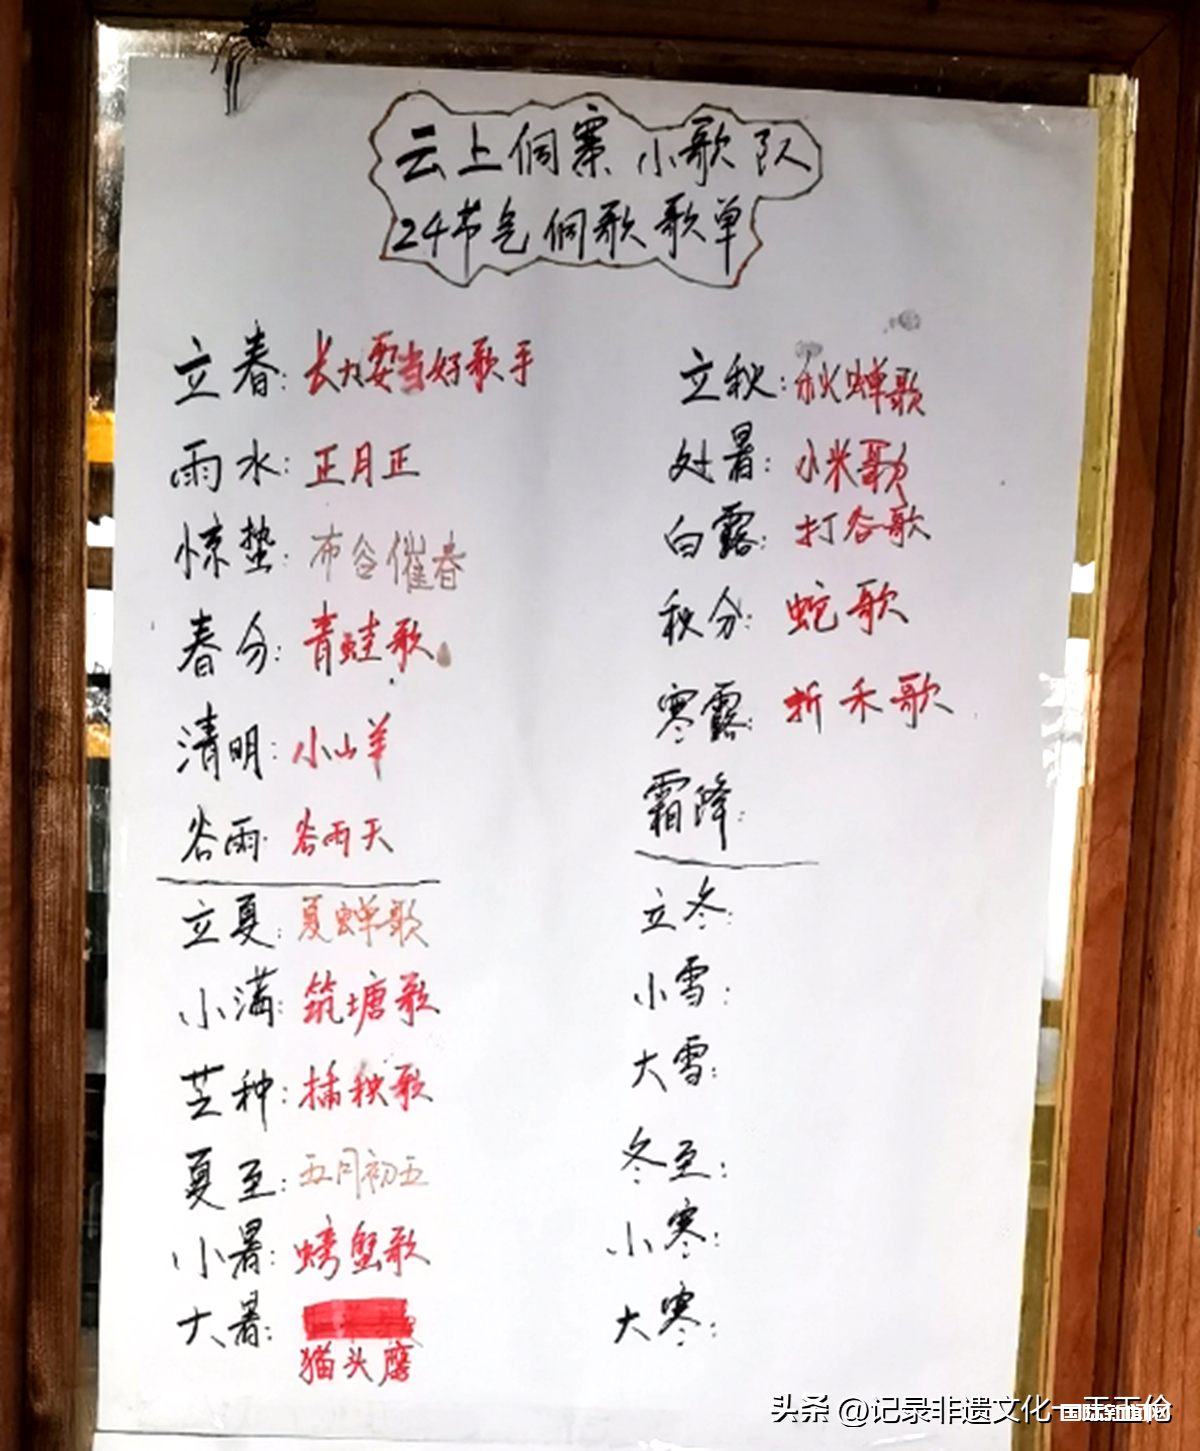 云上侗寨小歌队
24节气侗歌歌单
立春：长大要当好歌手
雨水：正月正
惊蛰：布谷催春
春分：青蛙歌
清明：小山羊
谷雨：谷雨天
立夏：夏蝉歌
小满：筑塘歌
芒种：插秧歌
夏至：五月初五
小暑：螃蟹歌
大暑：
猫头鹰
立秋：秋蝉歌
处暑：小米歌
白露：打谷歌
秋分：蛇歌
寒露：折禾歌
霜降：
立冬：
小雪：
大雪：
冬至：
小寒：
大寒：
头条 @记录非遗文化
国际新闻网